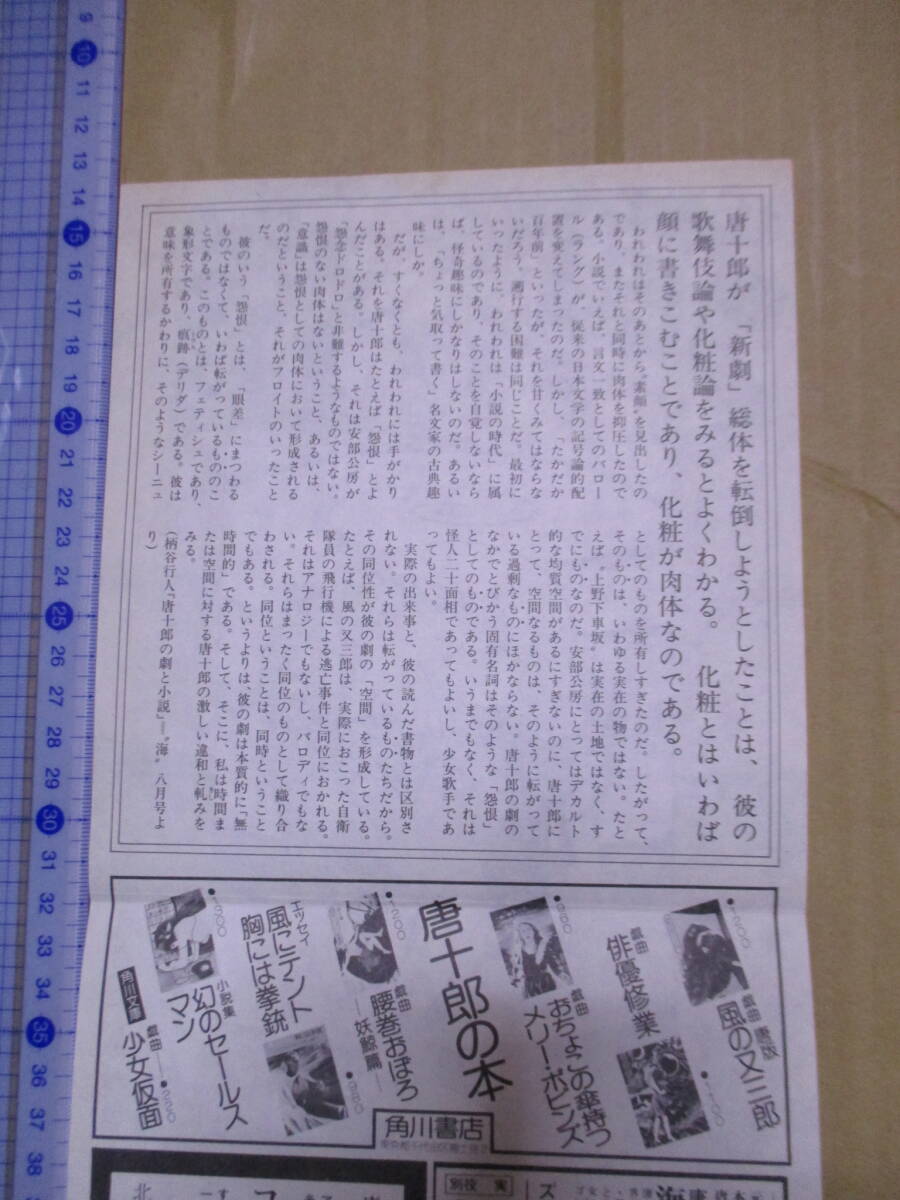 唐十郎が「新劇」総体を転倒しようとしたことは、彼の
歌舞伎論や化粧論をみるとよくわかる。化粧とはいわば
顔に書きこむことであり、化粧が肉体なのである。
われわれはそのあとから〝素顔〟を見出したの
であり、またそれと同時に肉体を抑圧したので
ある。小説でいえば、言文一致としてのパロー
ル(ラング)が、従来の日本文学の記号論的配
置を変えてしまったのだ。しかし、「たかだか
百年前」といったが、それを甘くみてはならな
いだろう。遡行する困難は同じことだ。最初に
いったように、われわれは「小説の時代」に属
しているのであり、そのことを自覚しないなら
ば、怪奇趣味にしかなりはしないのだ。あるい
は、「ちょっと気取って書く」名文家の古典趣
味にしか。
だが、すくなくとも、われわれには手がかり
はある。それを唐十郎はたとえば「怨恨」とよ
んだことがある。しかし、それは安部公房が
「怨念ドロドロ」と非難するようなものではない。
怨恨のない肉体はないということ、あるいは、
「意識」は怨恨としての肉体において形成される
のだということ、それがフロイトのいったこと
だ。
彼のいう「怨恨」とは、「眼差」にまつわる
ものではなくて、いわば転がっているもののこ
とである。このものとは、フェティシュであり、
象形文字であり、痕跡(デリダ)である。彼は
意味を所有するかわりに、そのようなシーニュ
としてのものを所有しすぎたのだ。したがって、
そのものは、いわゆる実在の物ではない。たと
えば〝上野下車坂〟は実在の土地ではなく、す
でにものなのだ。安部公房にとってはデカルト
的な均質空間があるにすぎないのに、唐十郎に
とって、空間なるものは、そのように転がって
いる過剰なものにほかならない。唐十郎の劇の
なかでとびかう固有名詞はそのような「怨恨」
としてのものである。いうまでもなく、それは
怪人二十面相であってもよいし、少女歌手であ
ってもよい。
実際の出来事と、彼の読んだ書物とは区別さ
れない。それらは転がっているものたちだから。
その同位性が彼の劇の「空間」を形成している。
たとえば、風の又三郎は、実際におこった自衛
隊員の飛行機による逃亡事件と同位におかれる。
それはアナロジーでもないし、パロディでもな
い。それらはまったく同位のものとして織り合
わされる。同位ということは、同時ということ
でもある。というよりは、彼の劇は本質的に「無
時間的」である。そして、そこに、私は時間ま
たは空間に対する唐十郎の激しい違和と軋みを
みる。
(柄谷行人「唐十郎の劇と小説」―〝海〟八月号よ
り)
●1200
戯曲 唐版 風の又三郎
戯曲 俳優修業
●1100
●980
戯曲 おちょこの傘持つ
メリー・ポピンズ
唐十郎の本
●1200
戯曲 腰巻おぼろ
―妖鯨篇―
エッセイ 風にテント
胸には拳銃
●980
●1300
小説集 幻のセールス
マン
角川文庫 戯曲 少女仮面 ―220
角川書店
9
10
11
12
13
14
15
16
17
18
19
20
21
22
23
24
25
26
27
28
29
30
31
32
33
34
35
36
37
38